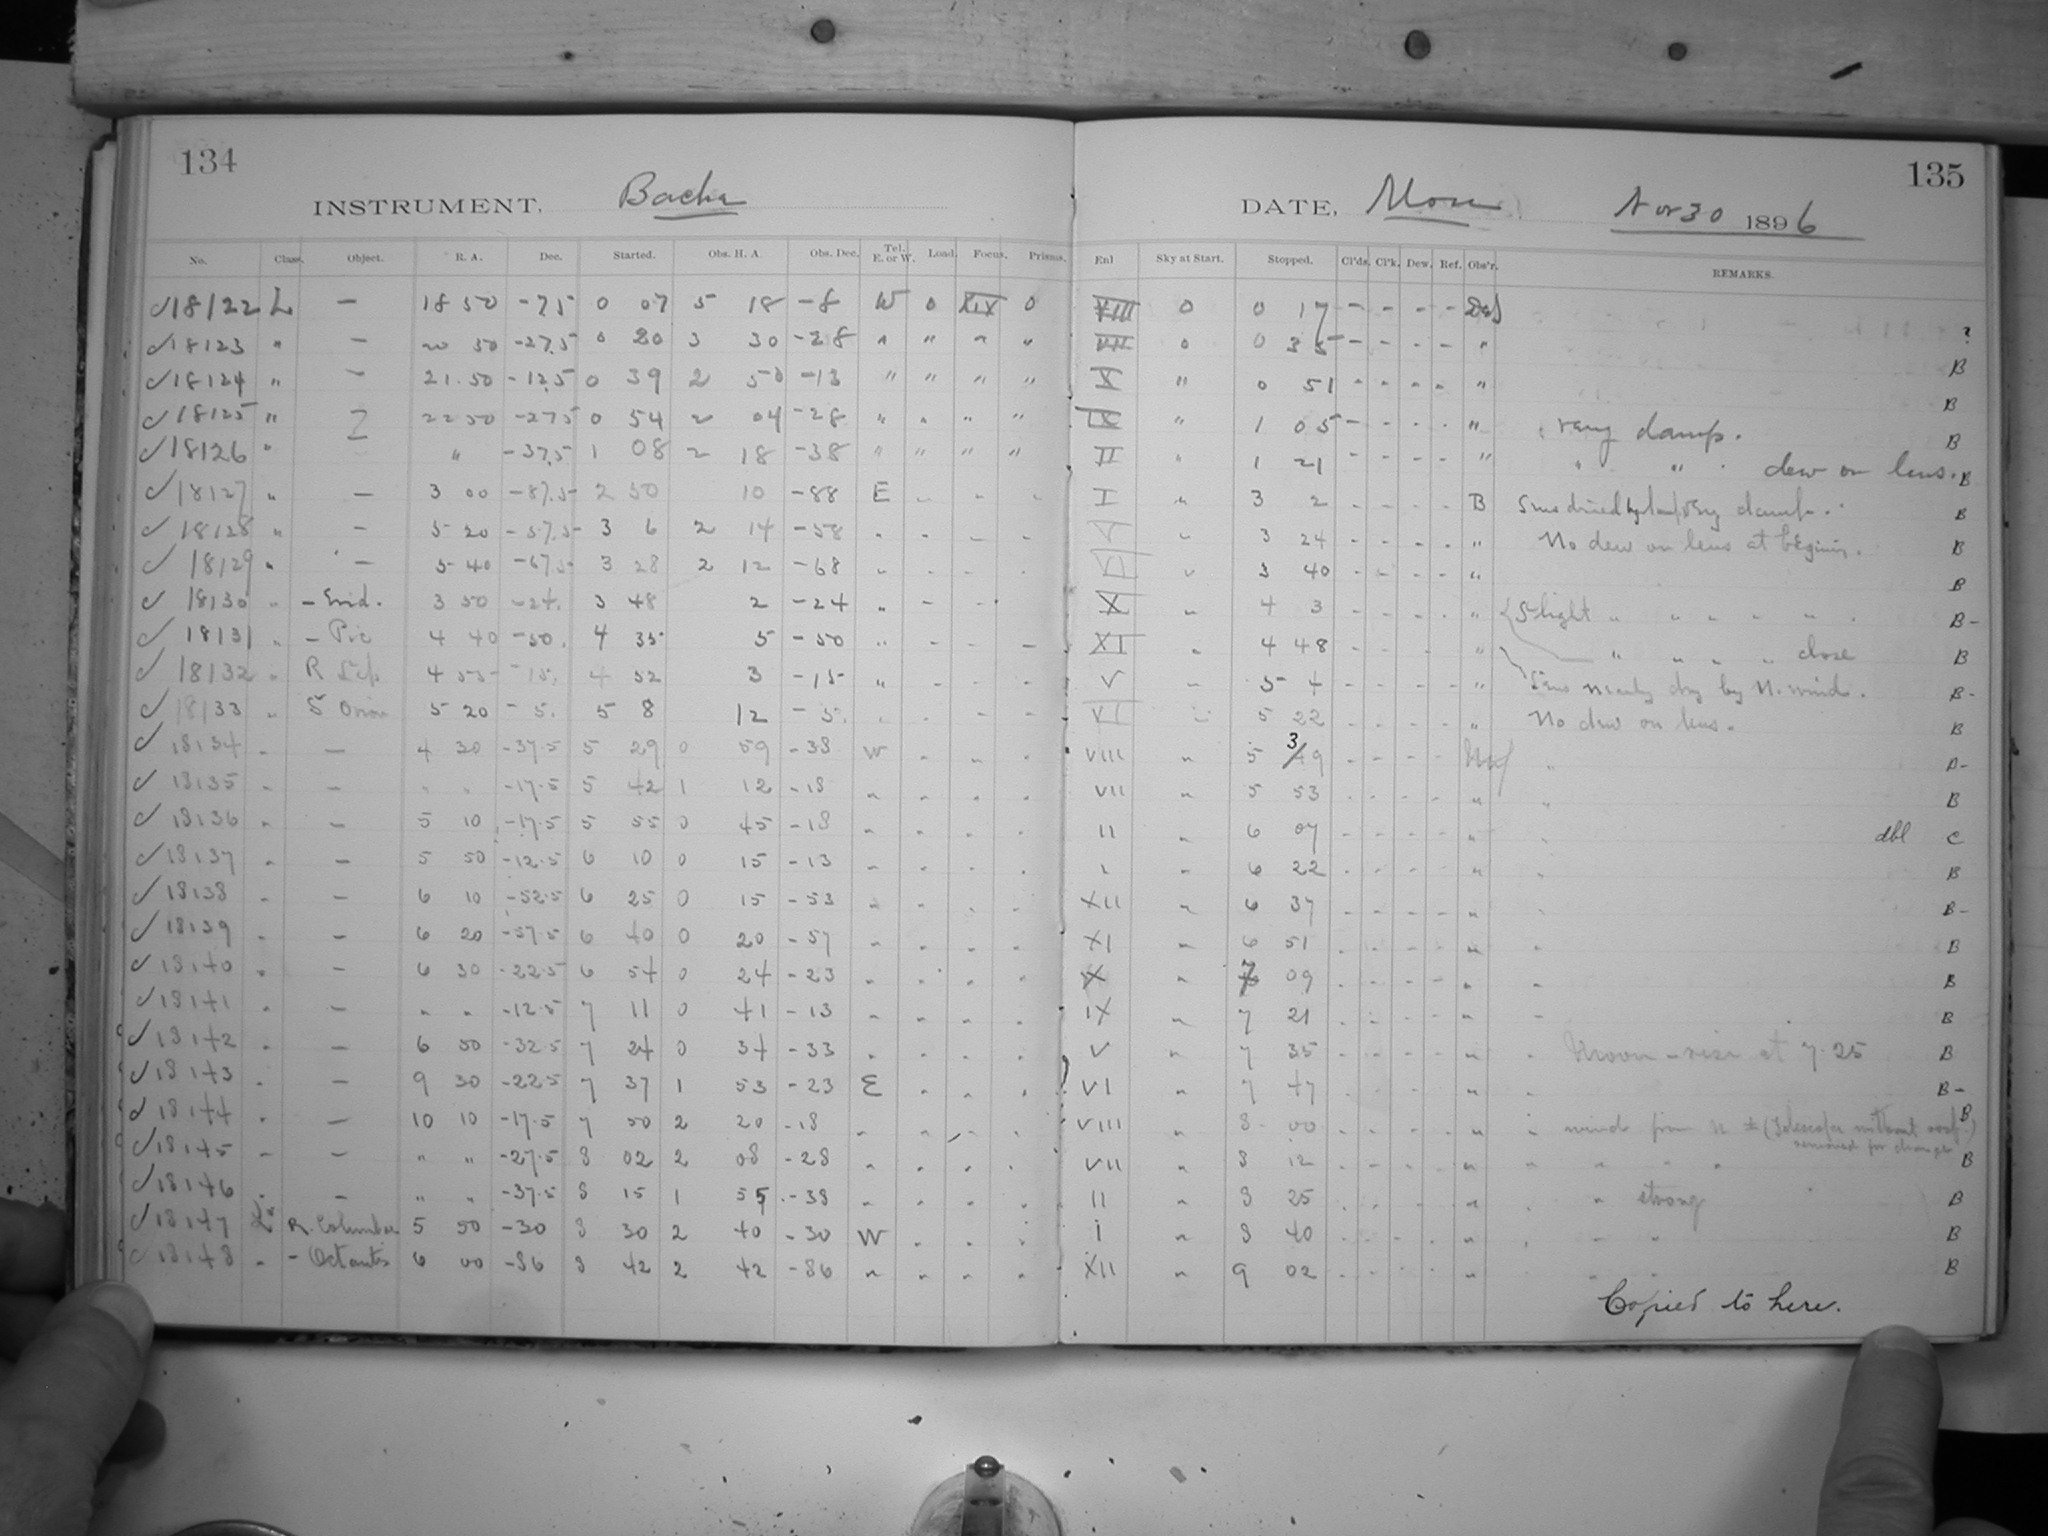 134
INSTRUMENT, Bache
No. Class. Object. R. A. Dec. Started. Obs. H. A. Obs. Dec. Tel. E. or W. Load. Focus. Prisms.
18122 L — 18 50 -7.5 0 07 5 18 -8 W 0 XIX 0
18123 " — 20 50 -27.5 0 20 3 30 -28 " " " "
18124 " — 21.50 -12.5 0 39 2 50 -13 " " " "
18125 " 22 50 -27.5 0 54 2 04 -28 " " " "
18126 " " -37.5 1 08 2 18 -38 " " " "
18127 " — 3 00 -87.5 2 50 10 -88 E " " "
18128 " — 5 20 -57.5 3 6 2 14 -58 " " " "
18129 " — 5 40 -67.5 3 28 2 12 -68 " " "
18130 " - Erid. 3 50 -24. 3 48 2 -24 " " "
18131 " - Pic 4 40 -50. 4 35 5 -50 " " " "
18132 " R Lep 4 55 -15. 4 52 3 -15 " " " "
18133 " S Orion 5 20 -5. 5 8 12 -5. " " " "
18134 " — 4 30 -37.5 5 29 0 59 -38 W " " "
18135 " - " " -17.5 5 42 1 12 -18 " " " "
18136 " — 5 10 -17.5 5 55 0 45 -18 " " " "
18137 " — 5 50 -12.5 6 10 0 15 -13 " " " "
18138 " — 6 10 -52.5 6 25 0 15 -53 " " " "
18139 " — 6 20 -57.5 6 40 0 20 -57 " " " "
18140 " — 6 30 -22.5 6 54 0 24 -23 " " " "
18141 " — " " -12.5 7 11 0 41 -13 " " " "
18142 " — 6 50 -32.5 7 24 0 34 -33 " " " "
18143 " — 9 30 -22.5 7 37 1 53 -23 E " " "
18144 " — 10 10 -17.5 7 50 2 20 -18 " " " "
18145 " — " " -27.5 8 02 2 08 -28 " " " "
18146 " — " " -37.5 8 15 1 55 -38 " " " "
18147 R. Columbae 5 50 -30 8 30 2 40 -30 W " " "
18148 " - Octantis 6 00 -86 8 42 2 42 -86 " " " "
135
DATE, Mon Nov 30 1896
Enl Sky at Start. Stopped. Cl'ds. Cl'k. Dew. Ref. Obs'r. REMARKS.
XIII 0 0 17 - - - - ?
VII 0 0 35 - - - - " B
X " 0 51 - - - - " B
IX " 1 05 - - - - " very damp. B
II " 1 21 - - - - " " " dew on lens. B
I " 3 2 - - - - B damp. B
V " 3 24 - - - - " No dew on lens at begining. B
VI " 3 40 - - - - " B
X " 4 3 - - - - " Slight " " " " " B-
XI " 4 48 - - - - " " " " " close B
V " 5 4 - - - - " Lens nearly dry by N. wind. B-
VI " 5 22 - - - - " No dew on lens. B
VIII " 5 39 - - - - "
VII " 5 53 - - - - " " B
II " 6 07 - - - - " " dbl C
I " 6 22 - - - - " " B
XII " 6 37 - - - - " " B-
XI " 6 51 - - - - " " B
X " 7 09 - - - - " " B
IX " 7 21 - - - - " " B
V " 7 35 - - - - " " Moon - rise at 7.25 B
VI " 7 47 - - - - " " B-
VIII " 8 00 - - - - " " wind from N ± (Telescope without roof.) B
removed for change
VII " 8 12 - - - - " " " " " B
II " 8 25 - - - - " " " strong B
I " 8 40 - - - - " " " " B
XII " 9 02 - - - - " " " B
Copied to here.